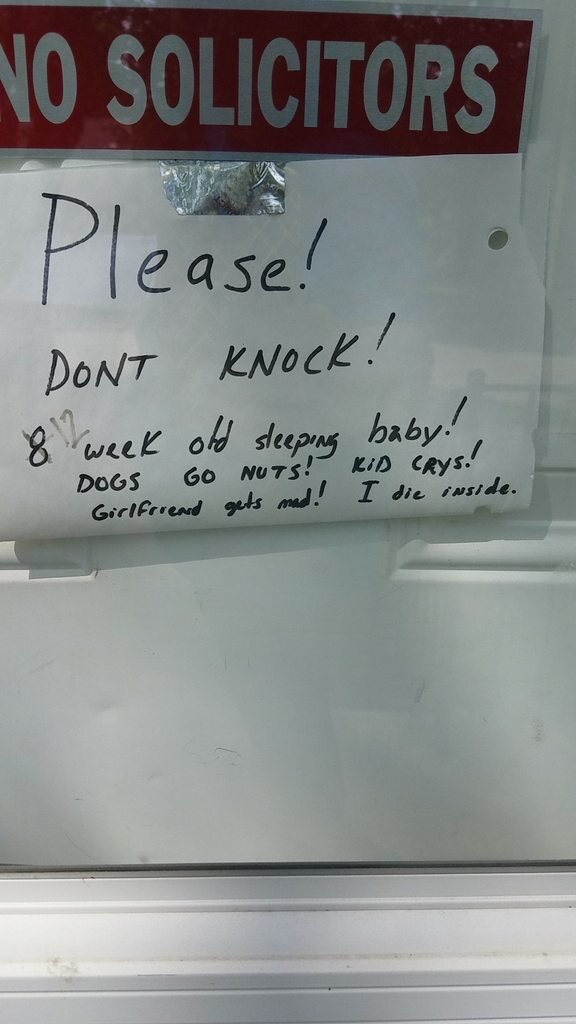 NO SOLICITORS
Please!
DONT KNOCK!
8 12 week old sleeping baby!
DOGS GO NUTS! KID CRYS!
Girlfriend gets mad! I die inside.